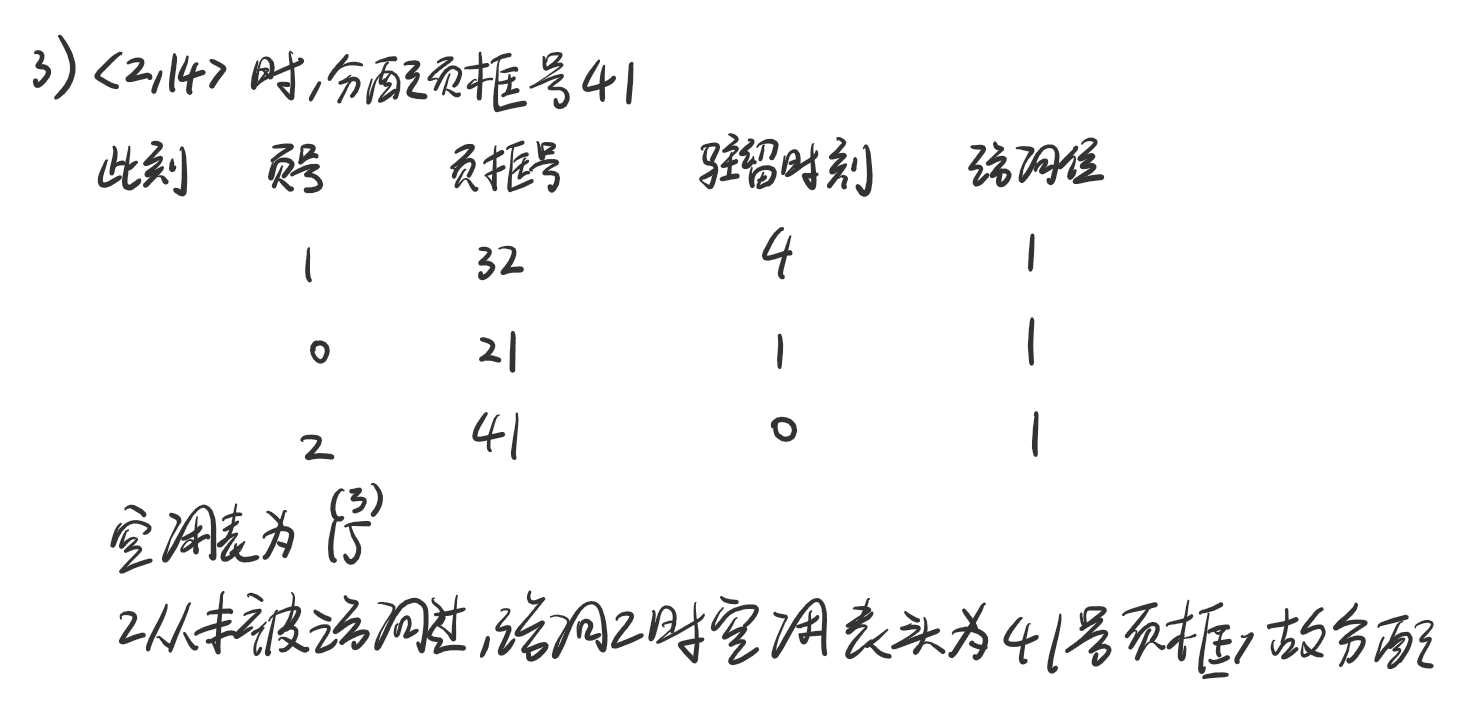 3) <2,14> 时,分配页框号41
此刻 页号 页框号 驻留时刻 访问位
1 32 4 1
0 21 1 1
2 41 0 1
空闲表为 15 (3)
2从未被访问过,访问2时空闲表头为41号页框,故分配